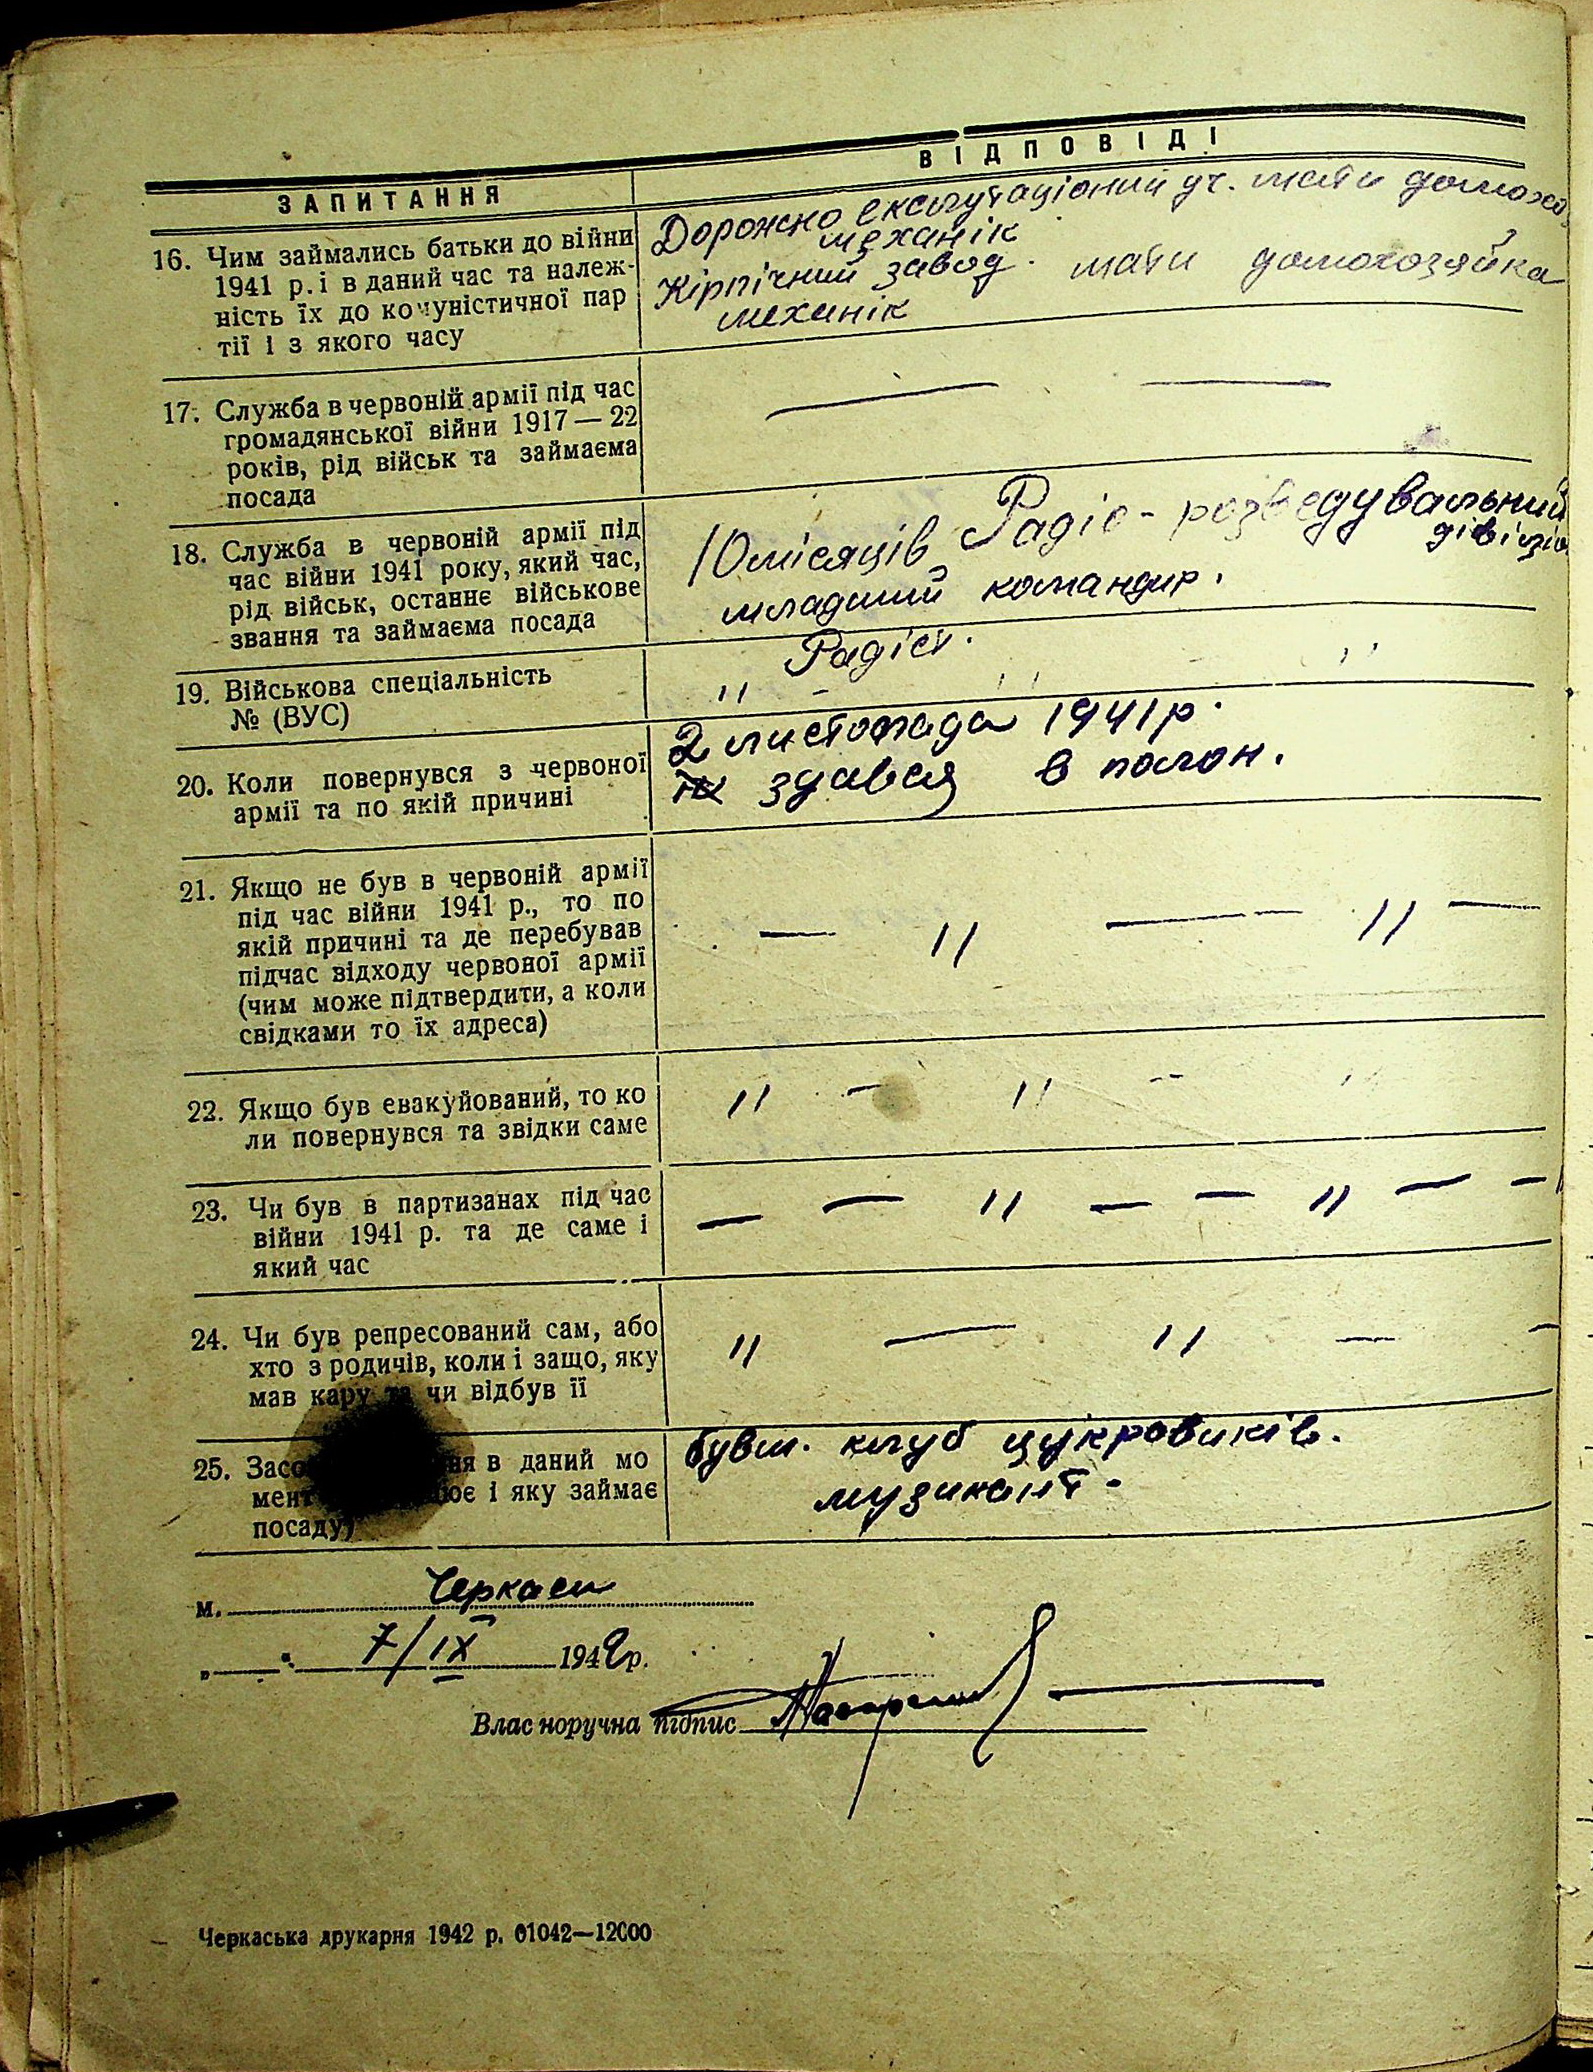 ЗАПИТАННЯ
ВІДПОВІДІ
16. Чим займались батьки до війни
1941 р. і в даний час та належ-
ність їх до комуністичної пар
тії і з якого часу
Дорожно ексглутаціоний уч. мати домохоз
механік
Кірпічний завод. мати домохозяйка
механік
17. Служба в червоній армії під час
громадянської війни 1917 — 22
років, рід військ та займаєма
посада
— —
18. Служба в червоній армії під
час війни 1941 року, який час,
рід військ, останнє військове
звання та займаєма посада
10 місяців Радіо-розведувальний
дівізіо
младший командир.
19. Військова спеціальність
№ (ВУС)
Радіст.
" - " "
20. Коли повернувся з червоної
армії та по якій причині
2 листопада 1941 р.
здався в полон.
21. Якщо не був в червоній армії
під час війни 1941 р., то по
якій причині та де перебував
підчас відходу червоної армії
(чим може підтвердити, а коли
свідками то їх адреса)
— " — " —
22. Якщо був евакуйований, то ко
ли повернувся та звідки саме
" — " — "
23. Чи був в партизанах під час
війни 1941 р. та де саме і
який час
— — " — — " — —
24. Чи був репресований сам, або
хто з родичів, коли і защо, яку
мав кару та чи відбув її
" — " — —
25. в даний мо
мент і яку займає
посаду)
бувш. клуб цукровиків.
музикант.
м. Черкаси
„ " 7/IX 1942 р.
Власноручна підпис
Черкаська друкарня 1942 р. 01042—12000